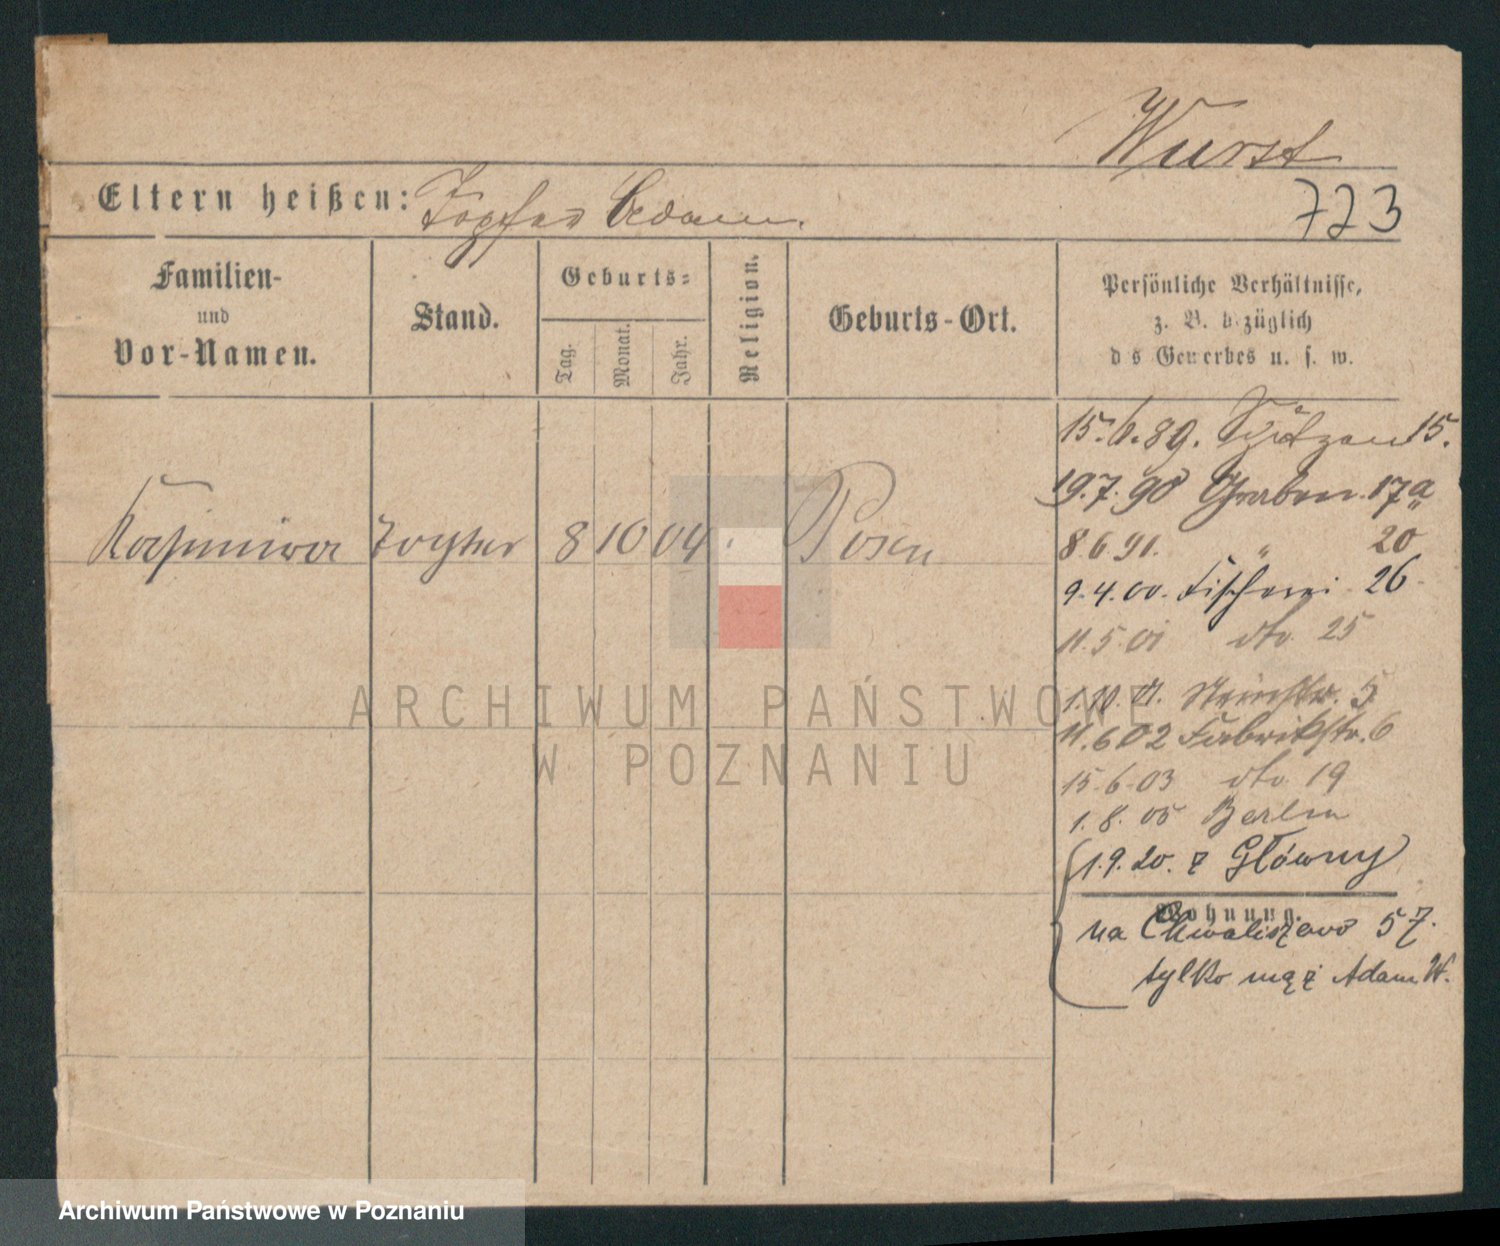 Wurst
Eltern heißen: Töpfer Adam.
723
Familien-
und
Vor-Namen.
Stand.
Geburts-
Tag.
Monat.
Jahr.
Religion.
Geburts-Ort.
Persönliche Verhältnisse,
z. B. bezüglich
des Gewerbes u. s. w.
15.6.89. 15.
19.7.90 Graben 17a
8.6.91. " 20
9.4.00. Fischerei 26
11.5.01 dto 25
1.10.01. 5
11.6.02 Fabrikstr. 6
15.6.03 dto 19
1.8.05 Berlin
1.9.20. z Główny
Wohnung.
na Chwaliszewo 57.
tylko mąż Adam W.
Kasimira Tochter 8 10 04 Posen
ARCHIWUM PAŃSTWOWE
W POZNANIU
Archiwum Państwowe w Poznaniu